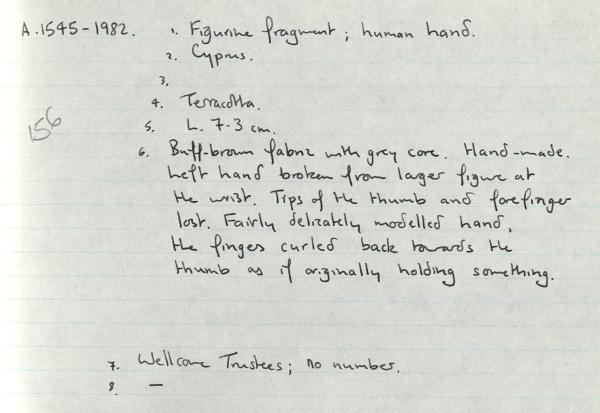 A.1545-1982. 1. Figurine fragment; human hand.
2. Cyprus.
3.
4. Terracotta.
5. L. 7.3 cm.
156
6. Buff-brown fabric with grey core. Hand-made.
Left hand broken from larger figure at
the wrist. Tips of the thumb and forefinger
lost. Fairly delicately modelled hand,
the fingers curled back towards the
thumb as if originally holding something.
7. Wellcome Trustees; no number.
8. —